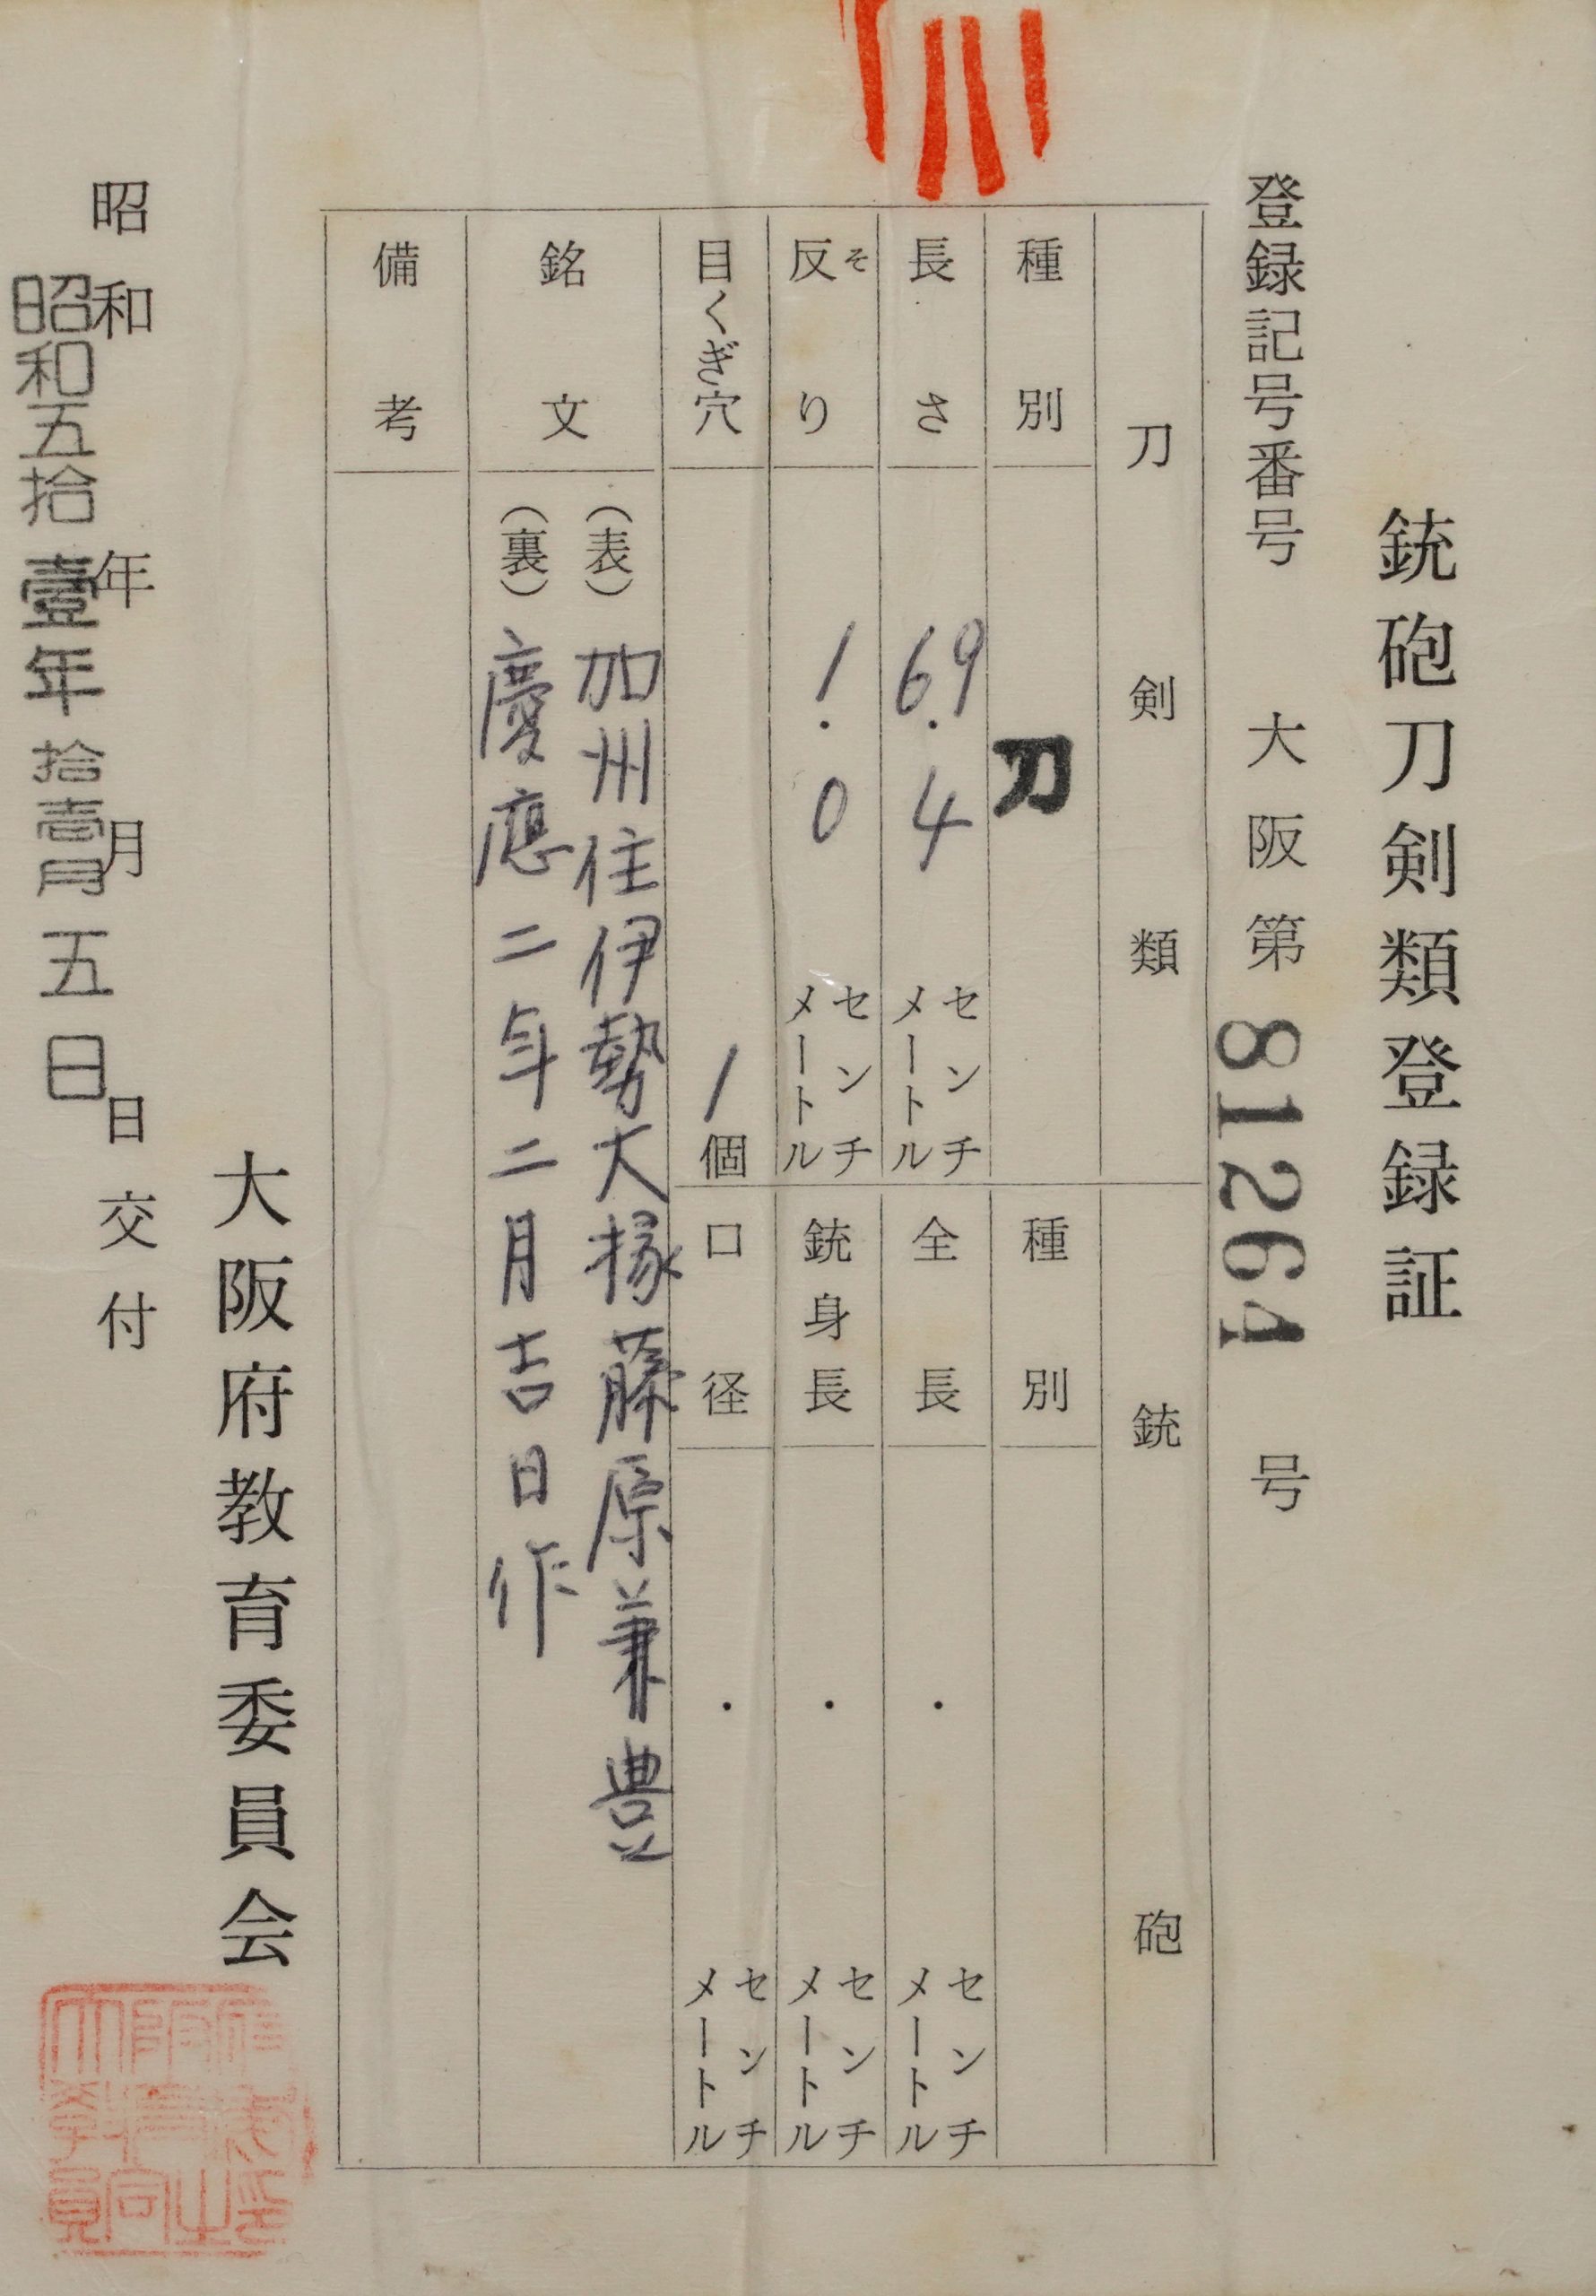 銃砲刀剣類登録証
登録記号番号 大阪第81264号
刀剣類
種別 刀
長さ 69.4 センチメートル
反り そ 1.0 センチメートル
目くぎ穴 1個
銃砲
種別
全長 . センチメートル
銃身長 . センチメートル
口径 . センチメートル
銘文
(表) 加州住伊勢大掾藤原兼豊
(裏) 慶應二年二月吉日作
備考
大阪府教育委員会
昭和 年 月 日交付
昭和五拾壹年拾壹月五日